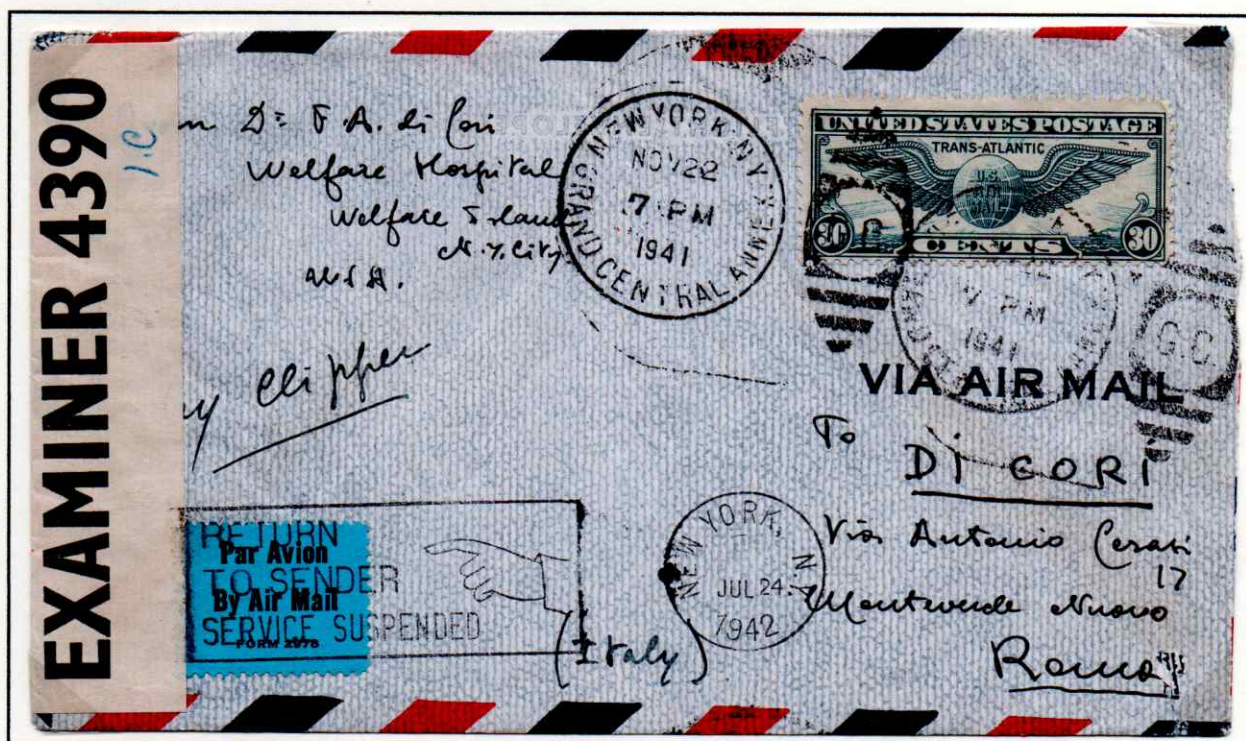 EXAMINER 4390
I.C
Dr F.A. di Cori
Welfare Hospital
Welfare Island
N.Y. City
U.S.A.
Clipper
NEW YORK, N.Y.
NOV 22
7 PM
1941
GRAND CENTRAL ANNEX
UNITED STATES POSTAGE
TRANS-ATLANTIC
U.S.
AIR
MAIL
30 CENTS 30
7 PM
1941
G.C.
VIA AIR MAIL
To
Di CORI
Via Antonio Cerasi
17
Monteverde Nuovo
Roma
(Italy)
RETURN
TO SENDER
SERVICE SUSPENDED
Par Avion
By Air Mail
FORM 2978
NEW YORK, N.Y.
JUL 24
1942